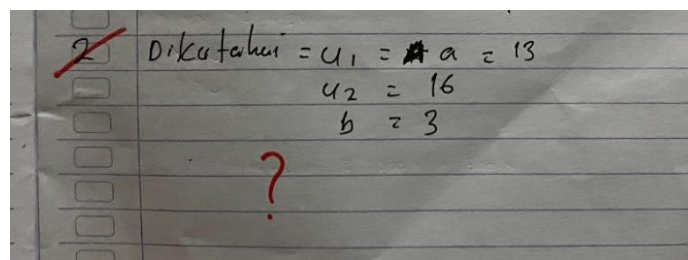 2 Diketahui = u1 = a = 13
u2 = 16
b = 3
?